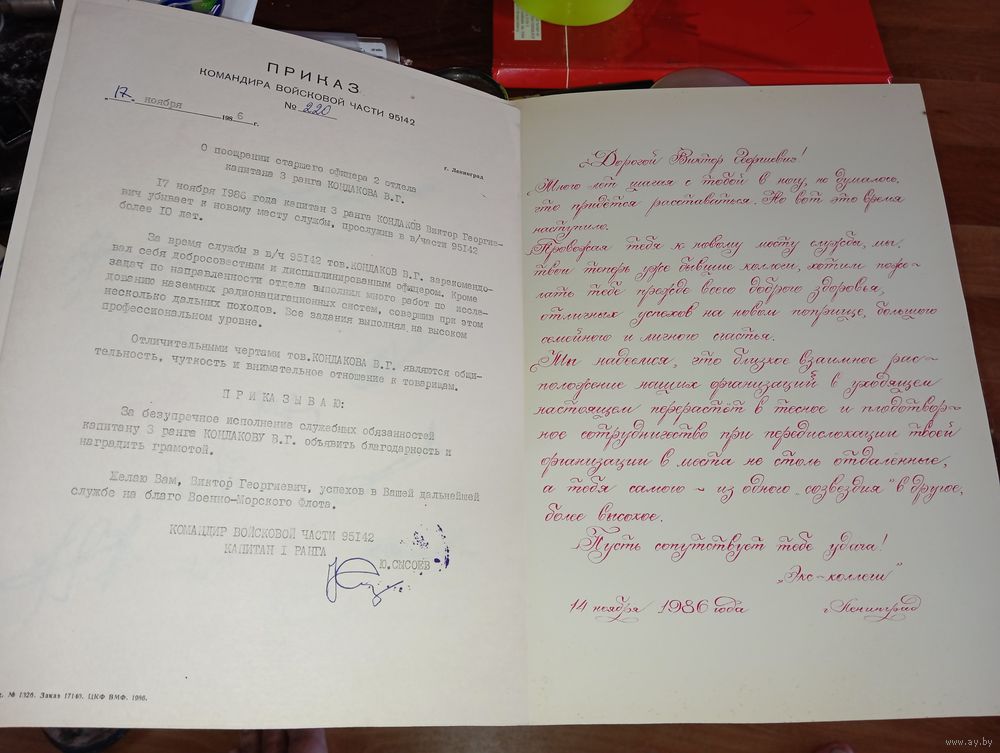 ПРИКАЗ
КОМАНДИРА ВОЙСКОВОЙ ЧАСТИ 95142
17 ноября 1986 г. № 220
г. Ленинград
О поощрении старшего офицера 2 отдела
капитана 3 ранга КОНДАКОВА В.Г.
17 ноября 1986 года капитан 3 ранга КОНДАКОВ Виктор Георгие-
вич убывает к новому месту службы, прослужив в в/части 95142
более 10 лет.
За время службы в в/ч 95142 тов.КОНДАКОВ В.Г. зарекомендо-
вал себя добросовестным и дисциплинированным офицером. Кроме
задач по направленности отдела выполнил много работ по иссле-
дованию наземных радионавигационных систем, совершив при этом
несколько дальних походов. Все задания выполнял на высоком
профессиональном уровне.
Отличительными чертами тов.КОНДАКОВА В.Г. являются общи-
тельность, чуткость и внимательное отношение к товарищам.
П Р И К А З Ы В А Ю:
За безупречное исполнение служебных обязанностей
капитану 3 ранга КОНДАКОВУ В.Г. объявить благодарность и
наградить грамотой.
Желаю Вам, Виктор Георгиевич, успехов в Вашей дальнейшей
службе на благо Военно-Морского Флота.
КОМАНДИР ВОЙСКОВОЙ ЧАСТИ 95142
КАПИТАН I РАНГА
Ю.СЫСОЕВ
№ 1326. Заказ 17140. ЦКФ ВМФ. 1986.
Дорогой Виктор Георгиевич!
Много лет шагая с тобой в ногу, не думалось,
что придётся расставаться. Но вот это время
наступило.
Провожая тебя к новому месту службы, мы,
твои теперь уже бывшие коллеги, хотим поже-
лать тебе прежде всего доброго здоровья,
отличных успехов на новом поприще, большого
семейного и личного счастья.
Мы надеемся, что близкое взаимное рас-
положение наших организаций в уходящем
настоящем перерастёт в тесное и плодотвор-
ное сотрудничество при передислокации твоей
организации в места не столь отдалённые,
а тебя самого - из одного „созвездия" в другое,
более высокое.
Пусть сопутствует тебе удача!
„Экс-коллеги"
14 ноября 1986 года г. Ленинград
www.ay.by